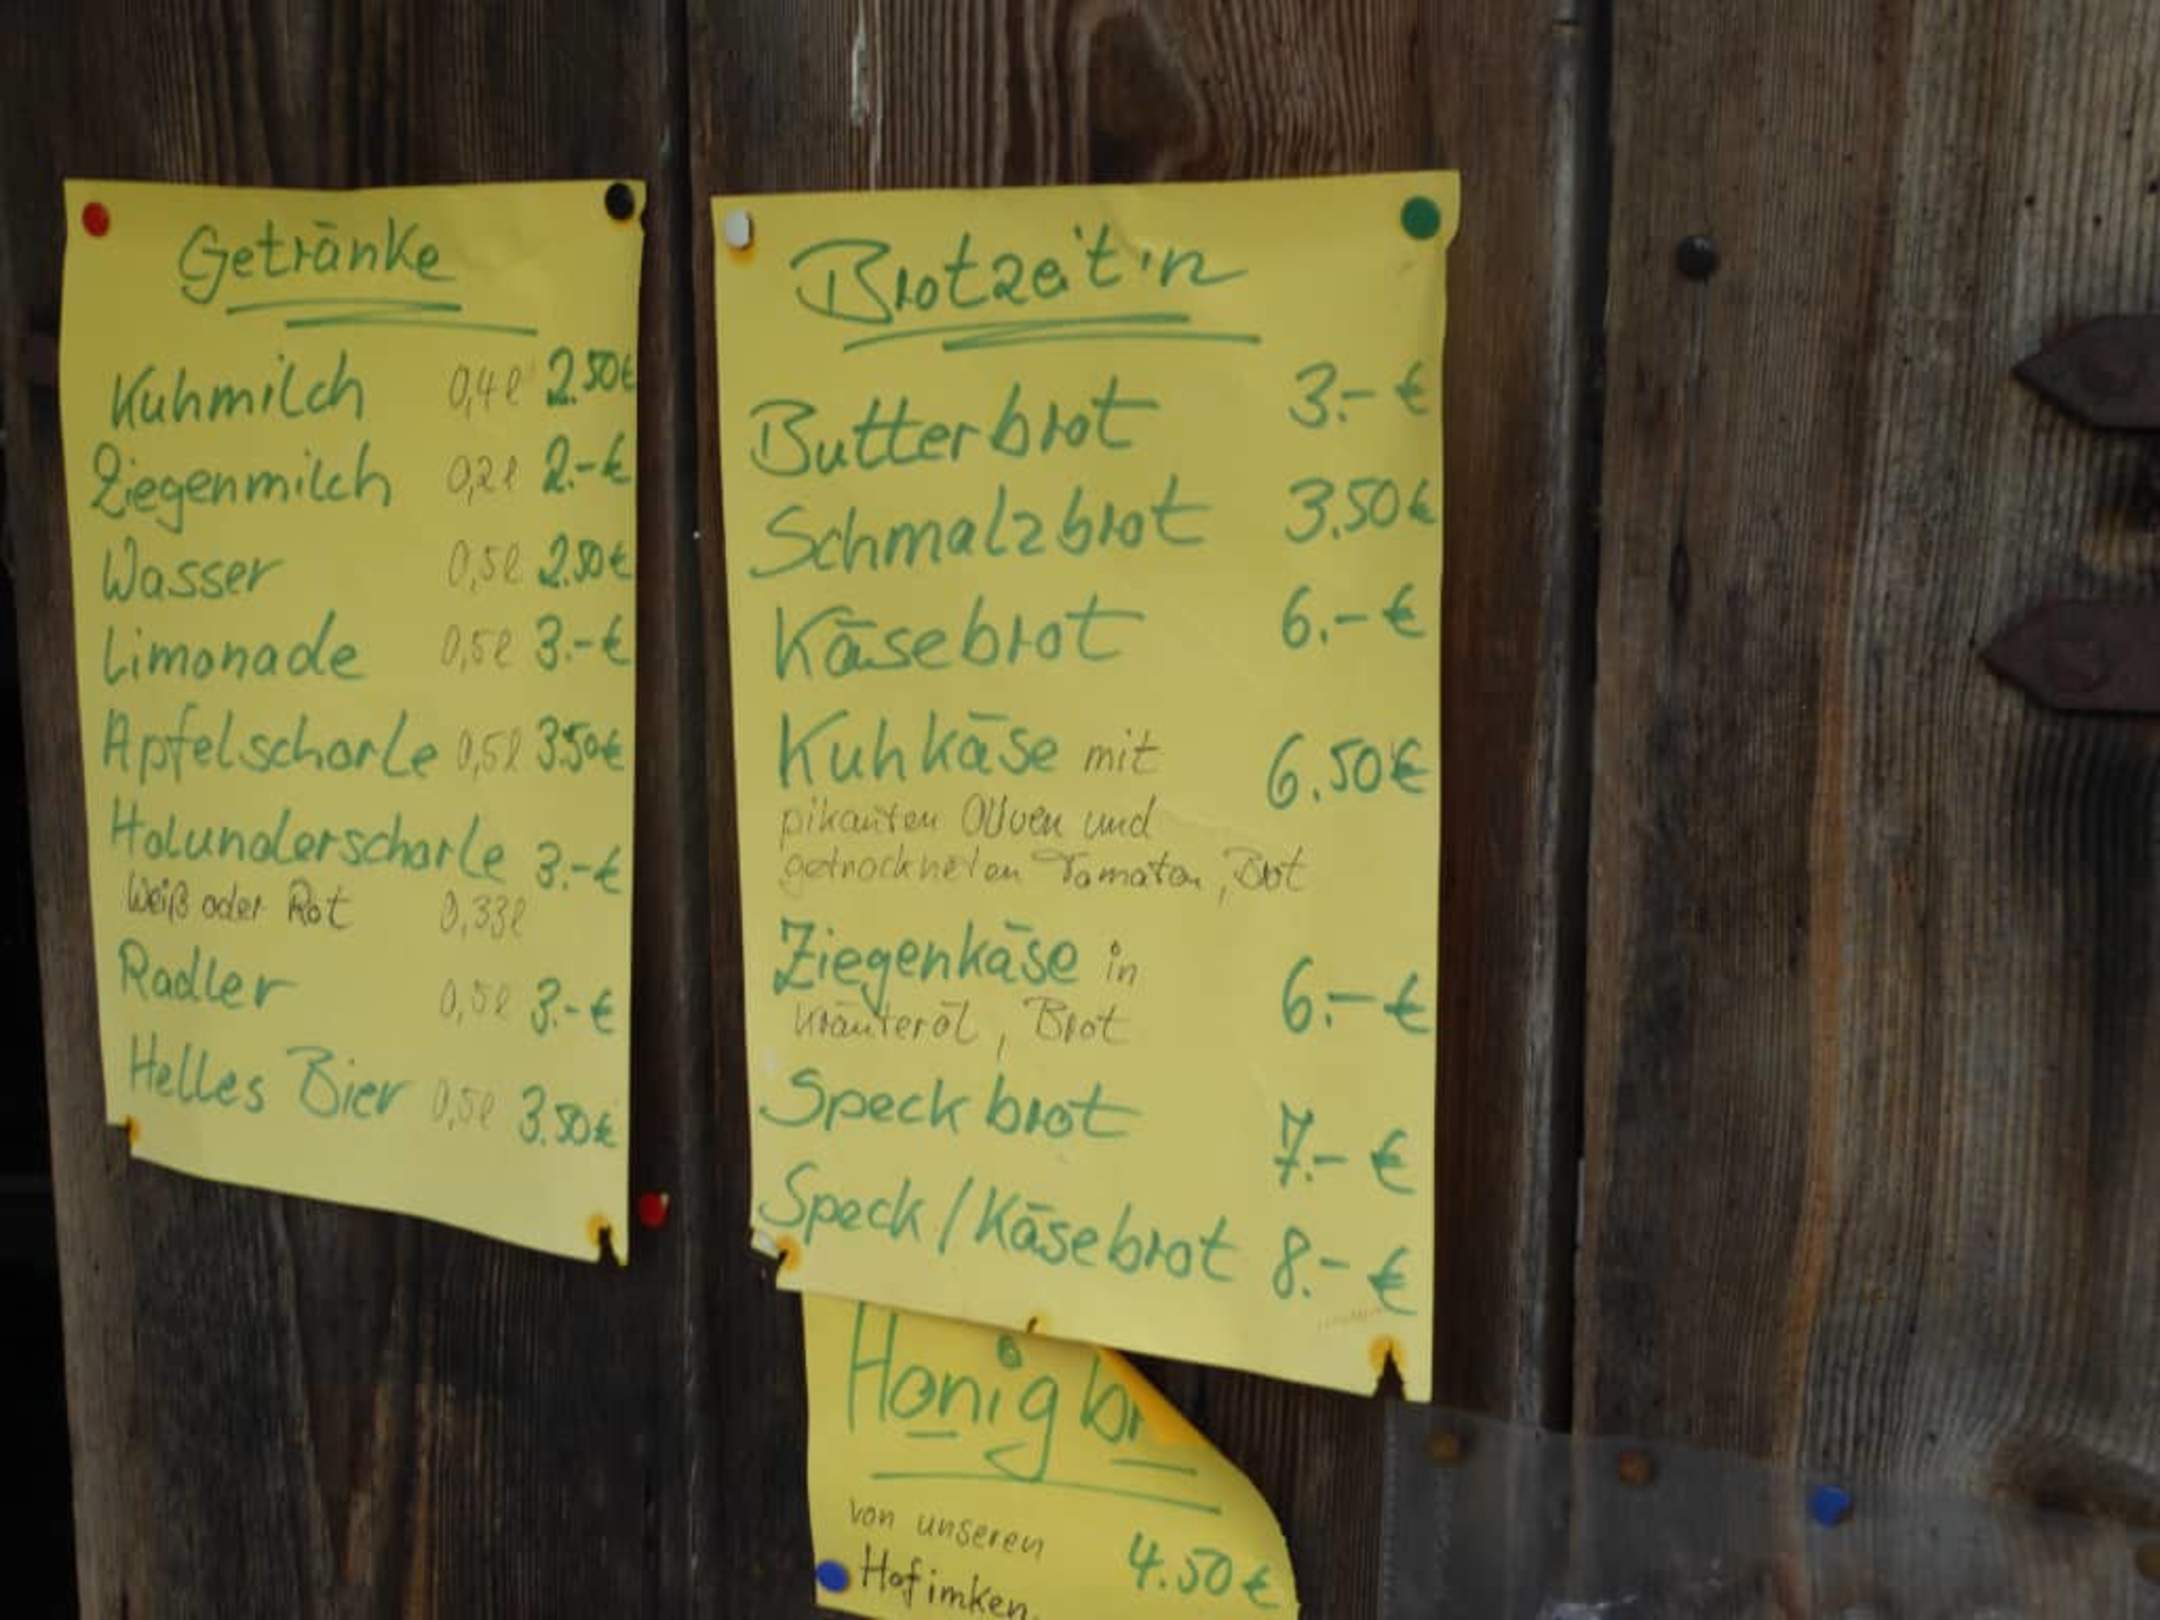 Getränke
Kuhmilch 0,4l 2.50€
Ziegenmilch 0,2l 2.-€
Wasser 0,5l 2.50€
Limonade 0,5l 3.-€
Apfelschorle 0,5l 3.50€
Holunderschorle 3.-€
Weiß oder Rot 0,33l
Radler 0,5l 3.-€
Helles Bier 0,5l 3.50€
Brotzeit'n
Butterbrot 3.-€
Schmalzbrot 3.50€
Käsebrot 6.-€
Kuhkäse mit 6.50€
pikanten Oliven und
getrockneten Tomaten, Brot
Ziegenkäse in 6.-€
Kräuteröl, Brot
Speckbrot 7.-€
Speck/Käsebrot 8.-€
Honigbr
von unseren 4.50€
Hofimken.